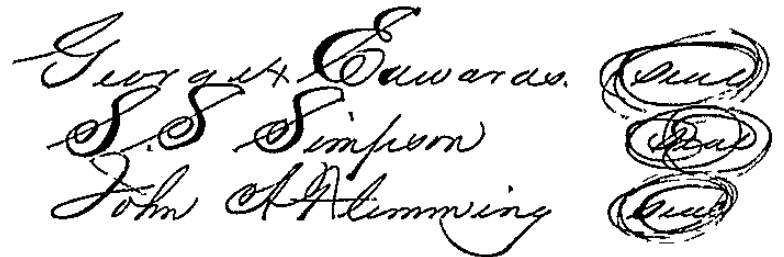 George H Edwards. Seal
S. S Simpson Seal
John A Flemming Seal